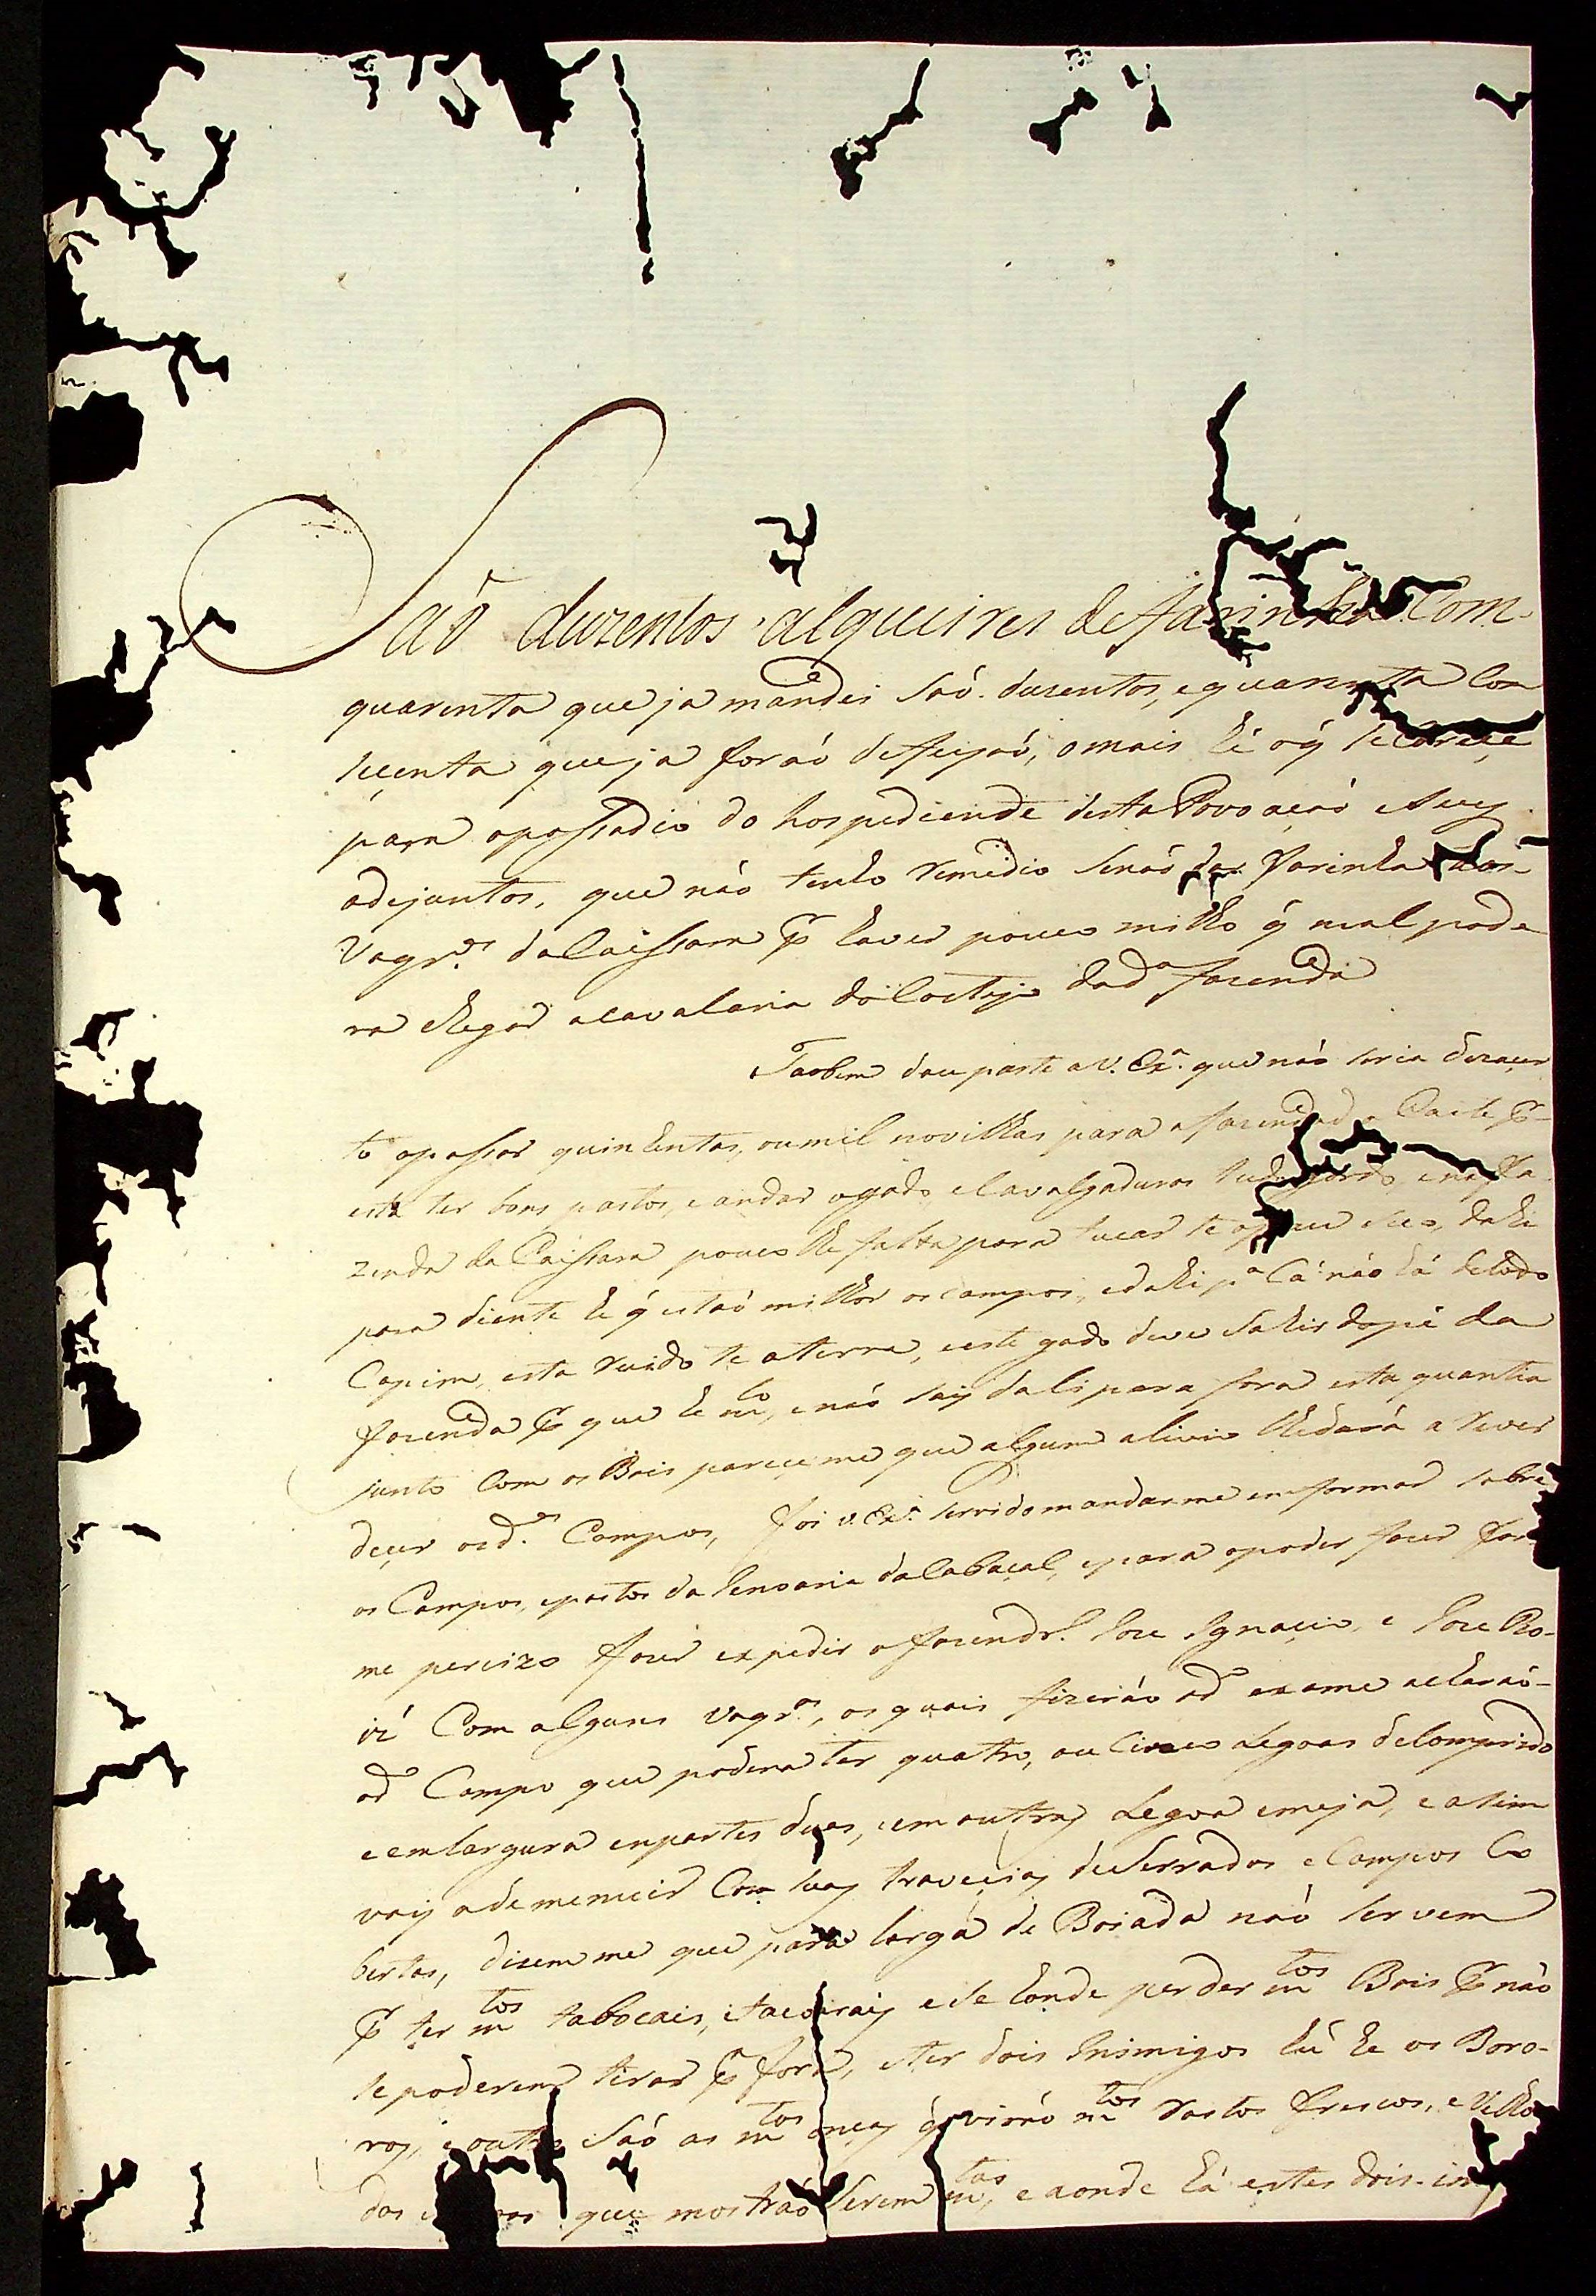 Saõ duzentos alqueires de farinha Com
quarenta que ja mandei saó duzentos, e quarenta Com
secenta que ja foraó de feijaó, o mais hé o q̃ se careçe
para opassadio do hospediende desta Povoaçaó e suas
adejuntos, que não tenho remedio senaó dar farinha aos
Vaqr.os da Caissara p̃ haver pouco milho q̃ mal pode
ra chegar a Cavalaria do Costeijo da d.a fazenda
Taobem dou parte a V. Ex.a que não seria dezacer
to opassar quinhentas, ou mil novilhas para a fazenda do Oeste p̃
esta ter bons pastos, e andar ogado, e Cavalgaduras tudo gordo, e na fa
zenda da Caissara pouco lhe falta para tucar se
para diente he q̃ estaó milhor os campos, e dahi p.a Cá não há de todo
Capim, esta ruido te aterra, e este gado deve sahir do pé da
fazenda p̃ que he m.to, e não sai dali para fora esta quantia
junto Com os Bois pareceme que algum alivio lhe dará a rever
deçer os d.os Campos, foi V. Ex.a servido mandarme emformar sobre
os Campos, e pastos da Senoaria da Cabaçal, e para o poder fazer foi
me percizo fazer expedir o fazendr.o Joze Ignaçio, e Joze Ro
iz Com alguns Vaqr.os, os quais fizeraó o d.o exame acharaó
o d.o Campo que poderá ter quatro, ou Cinco Legoas de Comprido
e em largura enpartes duas, e em outras Legoa e meja, e asim
vaij a demenuir Com suas traveçias de Serrados e Campos Co
bertos, dizem me que para largá de Boiada naó servem
p̃ ter m.tos tabocais, e tacoarais e se honde perder m.tos Bois p̃ não
se poderem tirar p̃a fora, e ter dois Enimigos hú he os Boro
ros, e outro saó as m.tas onças q̃ viraó m.tos rastos frescos, e Velho
dos que mostraó serem m.tas, e aonde há estes dois